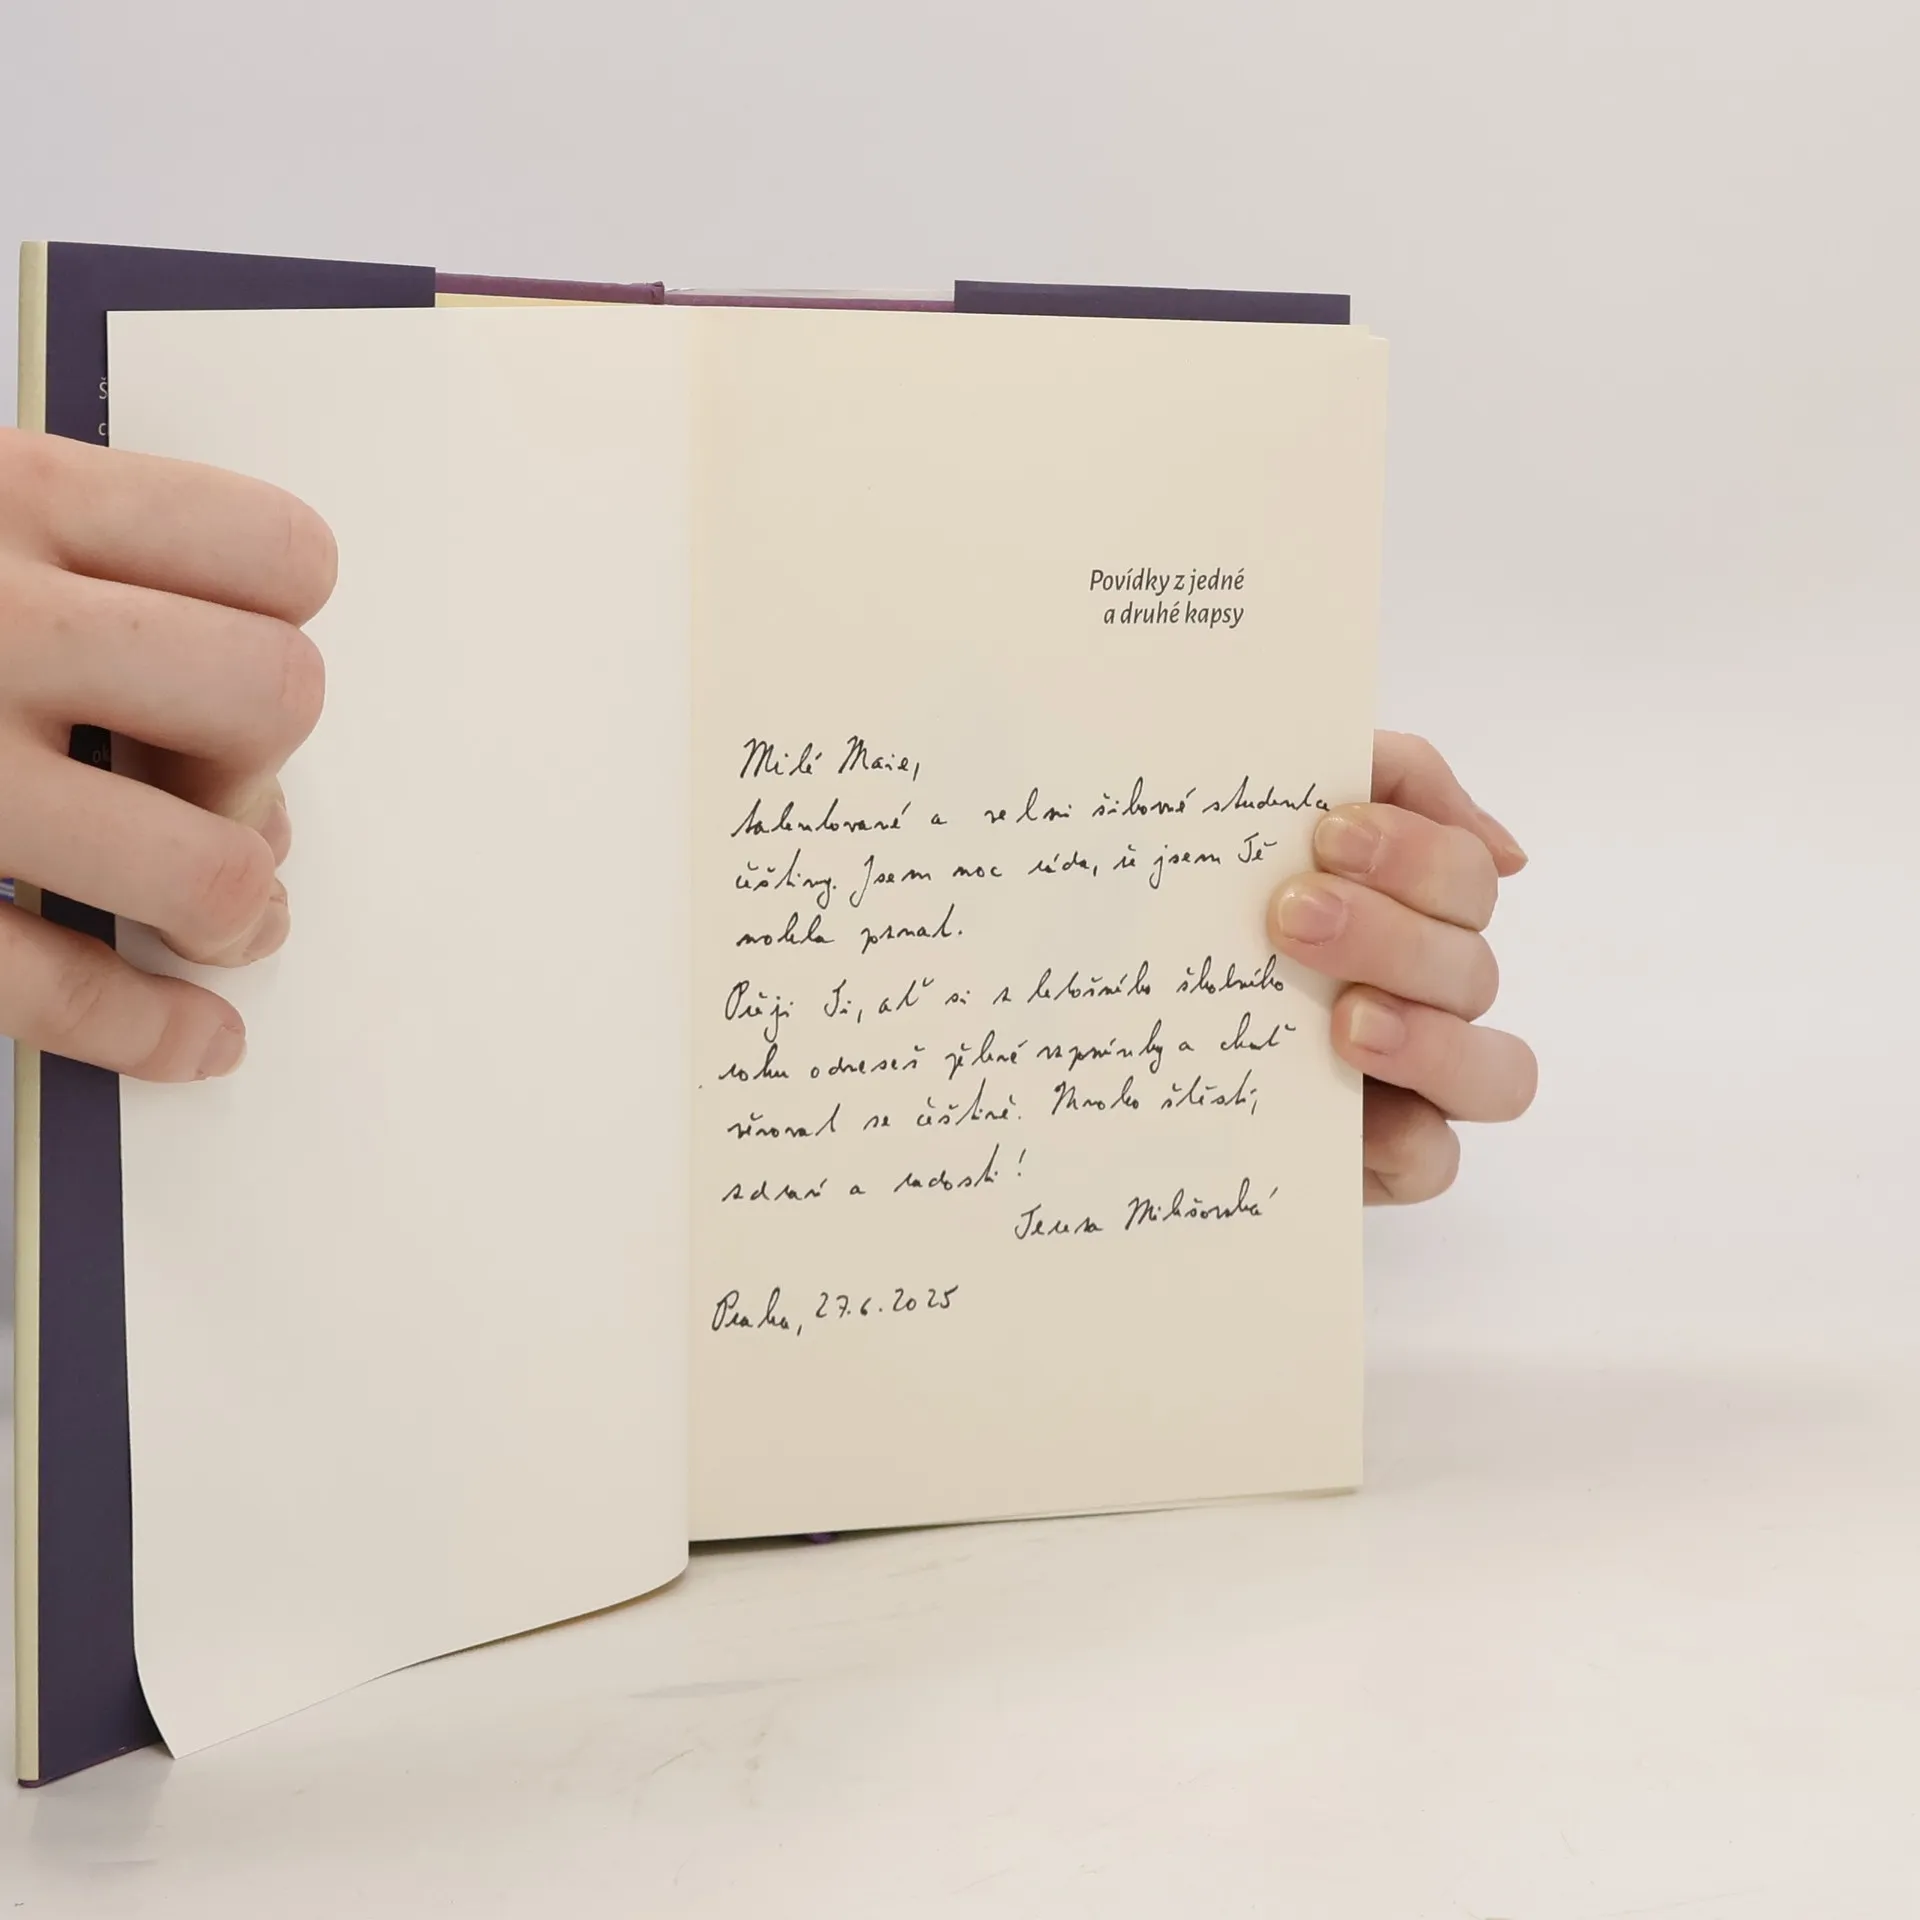 Povídky z jedné
a druhé kapsy
Milé Maie,
talentované a velmi šikovné studentce
češtiny. Jsem moc ráda, že jsem Tě
mohla poznat.
Přeji Ti, ať si z letošního školního
roku odneseš pěkné vzpomínky a chuť
věnovat se češtině. Mnoho štěstí,
zdraví a radosti!
Tereza
Praha, 27.6.2025